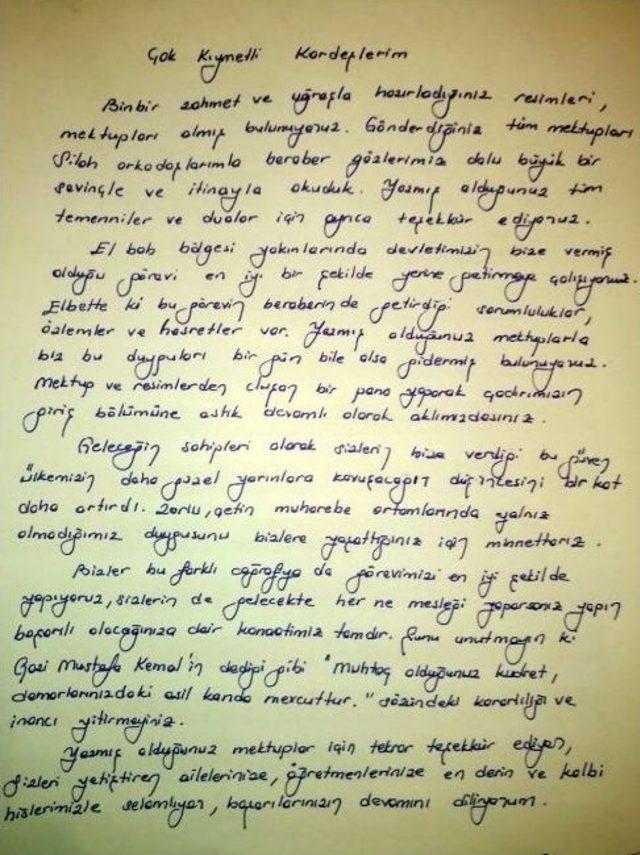 Çok Kıymetli Kardeşlerim
Binbir zahmet ve uğraşla hazırladığınız resimleri,
mektupları almış bulunuyoruz. Gönderdiğiniz tüm mektupları
Silah arkadaşlarımla beraber gözlerimiz dolu büyük bir
sevinçle ve itinayla okuduk. Yazmış olduğunuz tüm
temenniler ve dualar için ayrıca teşekkür ediyoruz.
El bab bölgesi yakınlarında devletimizin bize vermiş
olduğu görevi en iyi bir şekilde yerine getirmeye çalışıyoruz.
Elbette ki bu görevin beraberinde getirdiği sorumluluklar,
özlemler ve hasretler var. Yazmış olduğunuz mektuplarla
biz bu duyguları bir gün bile olsa gidermiş bulunuyoruz.
Mektup ve resimlerden oluşan bir pano yaparak çadırımızın
giriş bölümüne astık devamlı olarak aklımızdasınız.
Geleceğin sahipleri olarak sizlerin bize verdiği bu güven
ülkemizin daha güzel yarınlara kavuşacağın düşüncesini bir kat
daha artırdı. Zorlu, çetin muharebe ortamlarında yalnız
olmadığımız duygusunu bizlere yaşattığınız için minnettarız.
Bizler bu farklı coğrafya da görevimizi en iyi şekilde
yapıyoruz, sizlerin de gelecekte her ne mesleği yaparsanız yapın
başarılı olacağınıza dair kanaatimiz tamdır. Şunu unutmayın ki
Gazi Mustafa Kemal'in dediği gibi "Muhtaç olduğunuz kudret,
damarlarınızdaki asil kanda mevcuttur." sözündeki kararlılığı ve
inancı yitirmeyiniz.
Yazmış olduğunuz mektuplar için tekrar teşekkür ediyor,
sizleri yetiştiren ailelerinize, öğretmenlerinize en derin ve kalbi
hislerimizle selamlıyor, başarılarınızın devamını diliyorum.